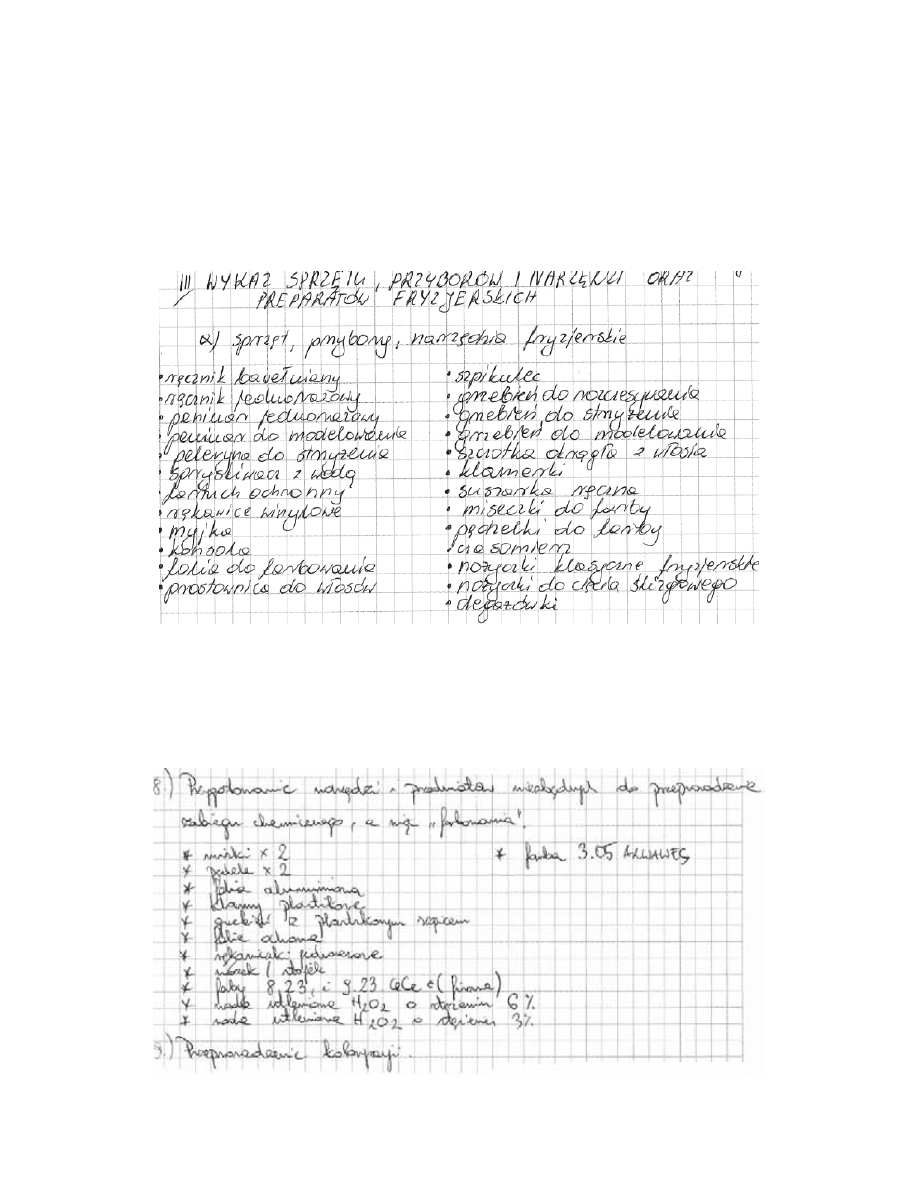 III WYKAZ SPRZĘTU, PRZYBORÓW I NARZĘDZI ORAZ
PREPARATÓW FRYZJERSKICH
a) sprzęt, przybory, narzędzia fryzjerskie
• ręcznik bawełniany
• ręcznik jednorazowy
• peniuar jednorazowy
• peniuar do modelowania
• peleryna do strzyżenia
• spryskiwacz z wodą
• fartuch ochronny
• rękawice winylowe
• myjka
• konsola
• folia do farbowania
• prostownica do włosów
• szpikulec
• grzebień do rozczesywania
• grzebień do strzyżenia
• grzebień do modelowania
• szczotka okrągła z włosia
• klamerki
• suszarka ręczna
• miseczki do farby
• pędzelki do farby
• czasomierz
• nożyczki klasyczne fryzjerskie
• nożyczki do cięcia ślizgowego
• degażówki
8.) Przygotowanie narzędzi i przedmiotów niezbędnych do przeprowadzenia
zabiegu chemicznego, a więc „farbowania".
* miski x 2
* pędzle x 2
* folia aluminiowa
* klamry plastikowe
* grzebień z plastikowym szpicem
* folia ochronna
* rękawiczki jednorazowe
* wózek / stolik
* farby 8.23, i 9.23 CeCe (firma)
* woda utleniona H2O2 o stężeniu 6%
* woda utleniona H2O2 o stężeniu 3%
* farba 3.05
9.) Przeprowadzenie koloryzacji.